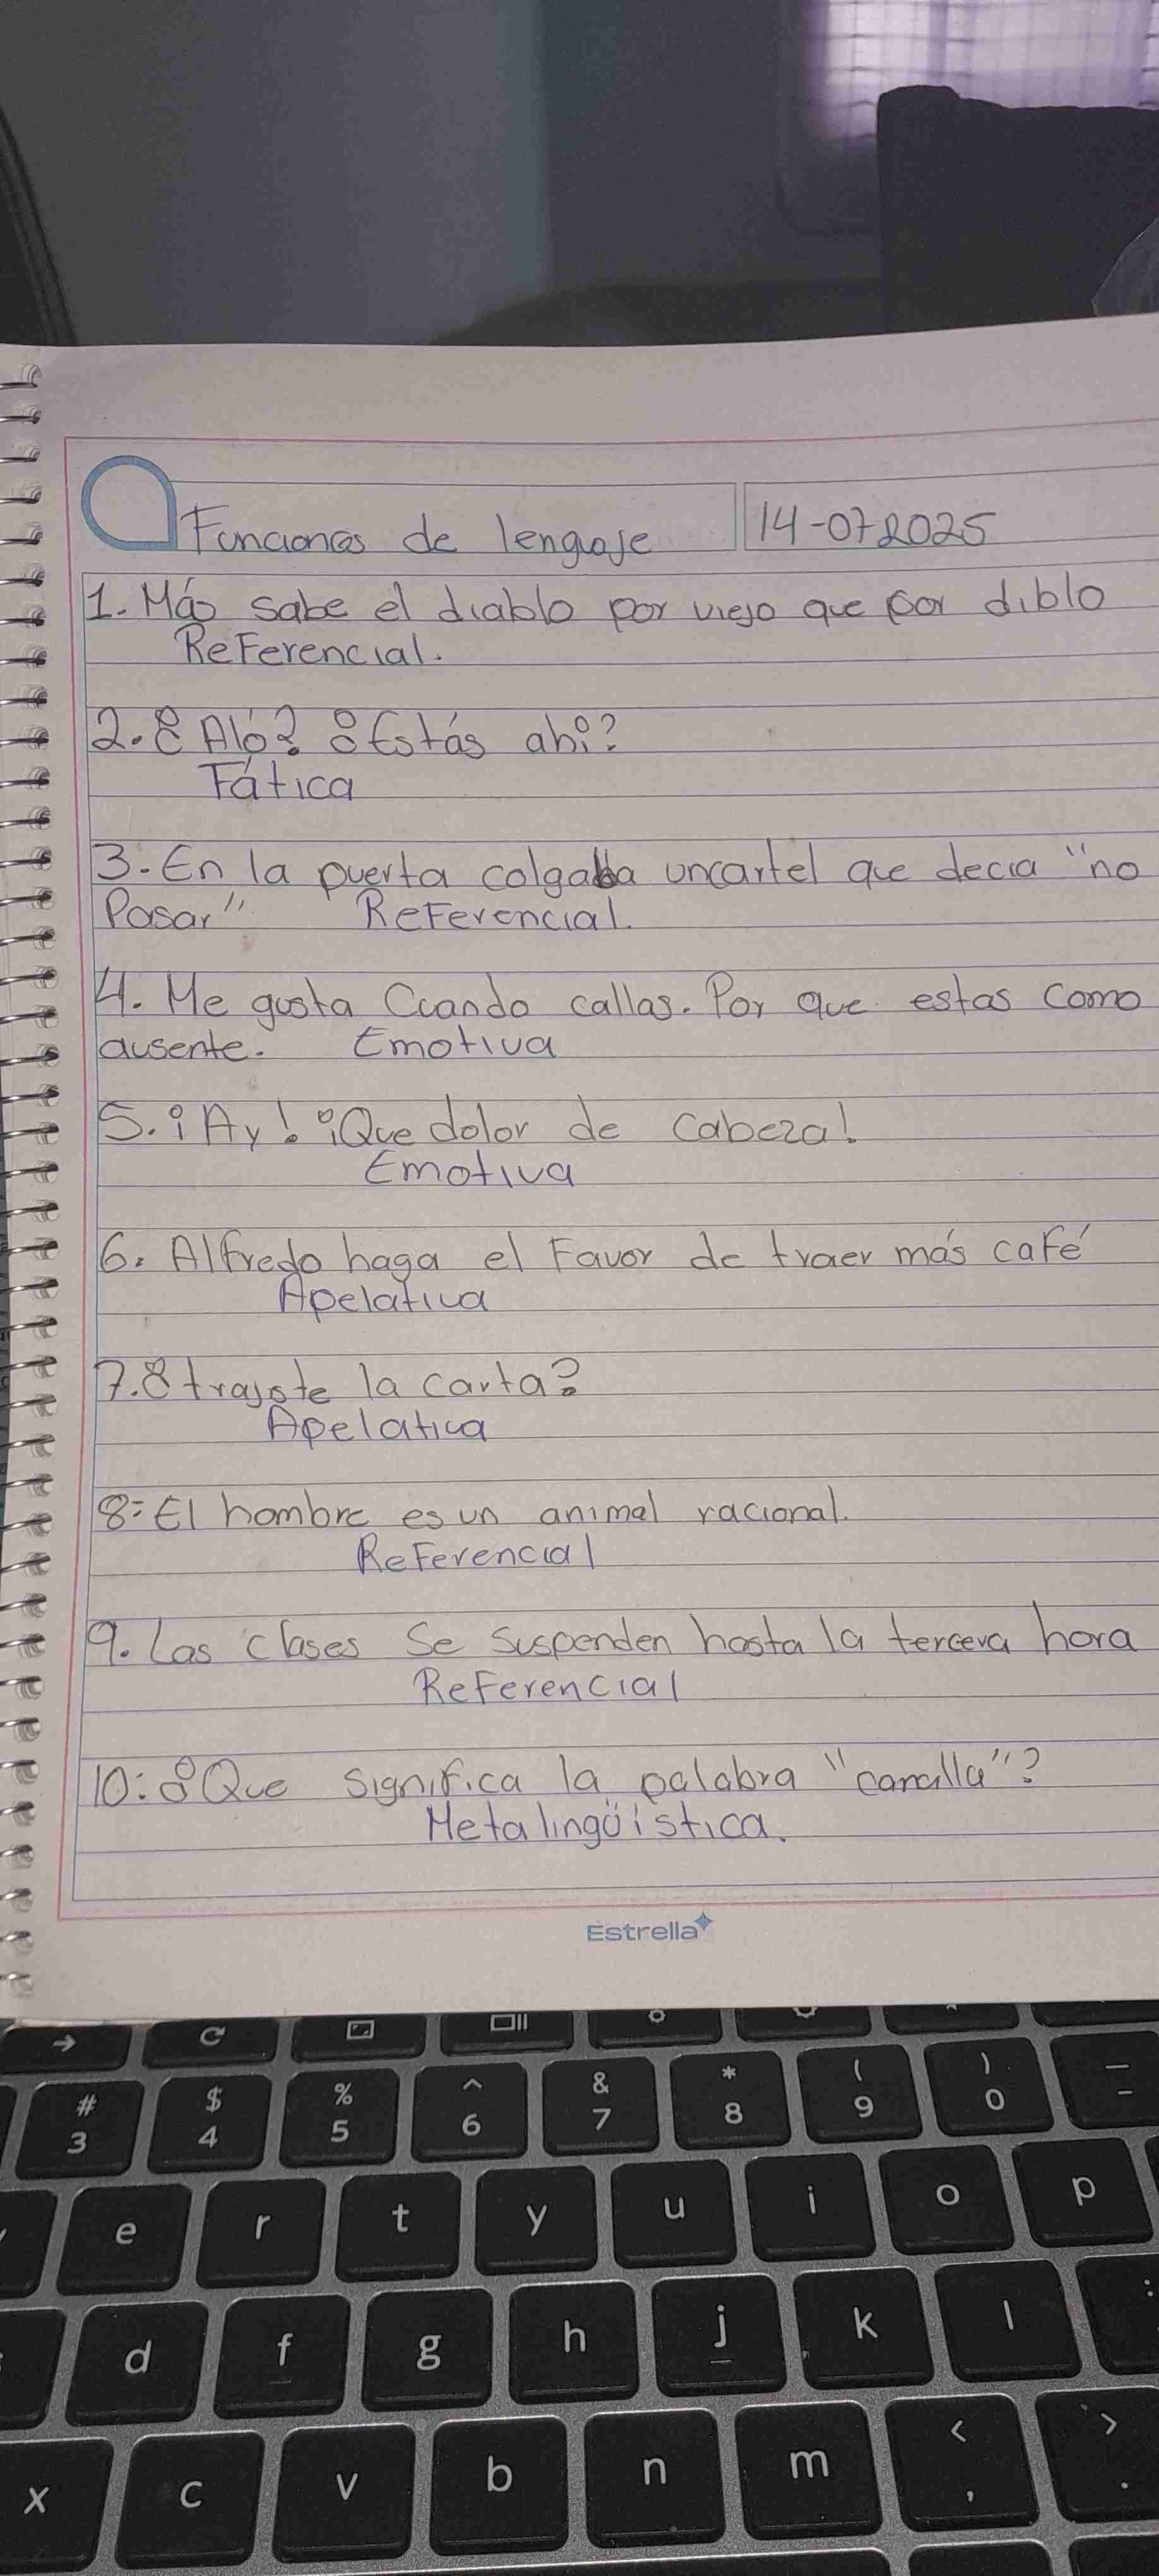 Funciones de lenguaje 14-072025
1. Más sabe el diablo por viejo que por diblo
Referencial.
2. ¿Aló? ¿Estás ahí?
Fática
3. En la puerta colgaba un cartel que decia "no
Pasar" Referencial.
4. Me gusta Cuando callas. Por que estas como
ausente. Emotiva
5. ¡Ay! ¡Que dolor de cabeza!
Emotiva
6. Alfredo haga el favor de traer más café
Apelativa
7. ¿trajste la carta?
Apelativa
8. El hombre es un animal racional.
Referencial
9. Las clases Se suspenden hasta la tercera hora
Referencial
10. ¿Que significa la palabra "canalla"?
Metalingüistica.
Estrella
# $ % ^ & * ( ) _
3 4 5 6 7 8 9 0 -
e r t y u i o p
d f g h j k l :
x c v b n m < >
, .